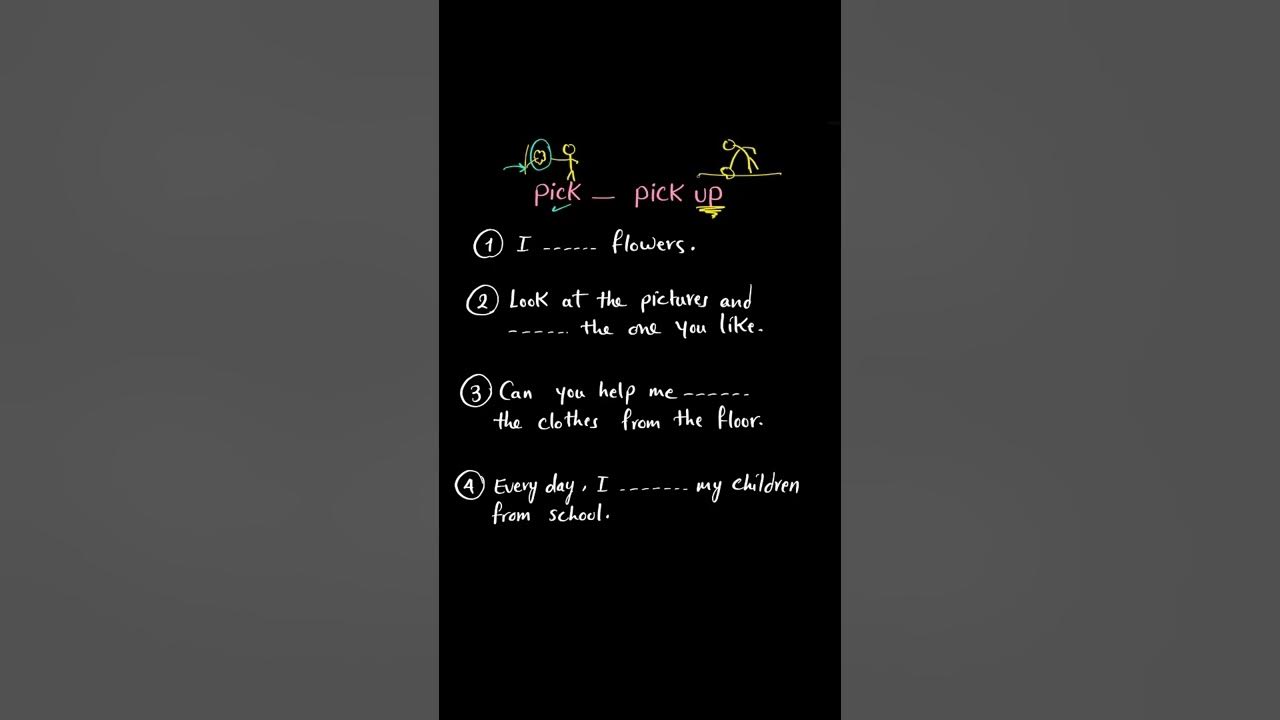 pick — pick up
1 I ------ flowers.
2 Look at the pictures and
------ the one you like.
3 Can you help me -------
the clothes from the floor.
4 Every day, I ------- my children
from school.